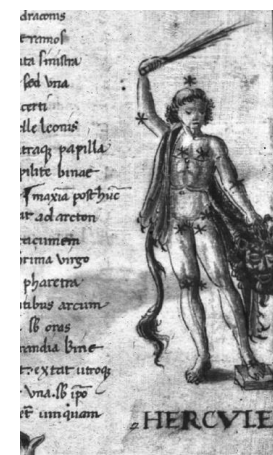 draconis
ramos
sinistra
sed vna
certi
ille leonis
traq; papilla
pilite binae
maxīa post hūc
ad arcton
cacumem
rima virgo
pharetra
tibus arcum
sb oras
randia bine
extat utroq;
vna. sb ipo
unquam
HERCVLE